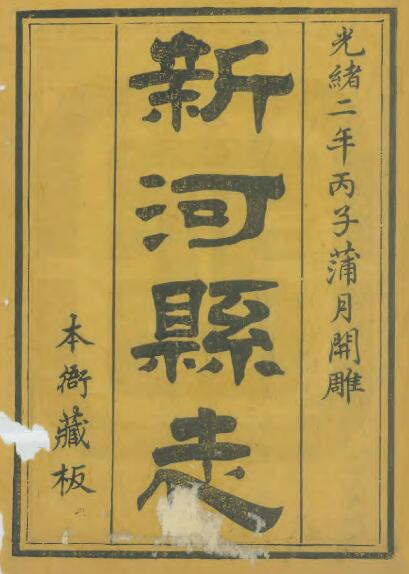 光緒二年丙子蒲月開雕
新河縣志
本衙藏板